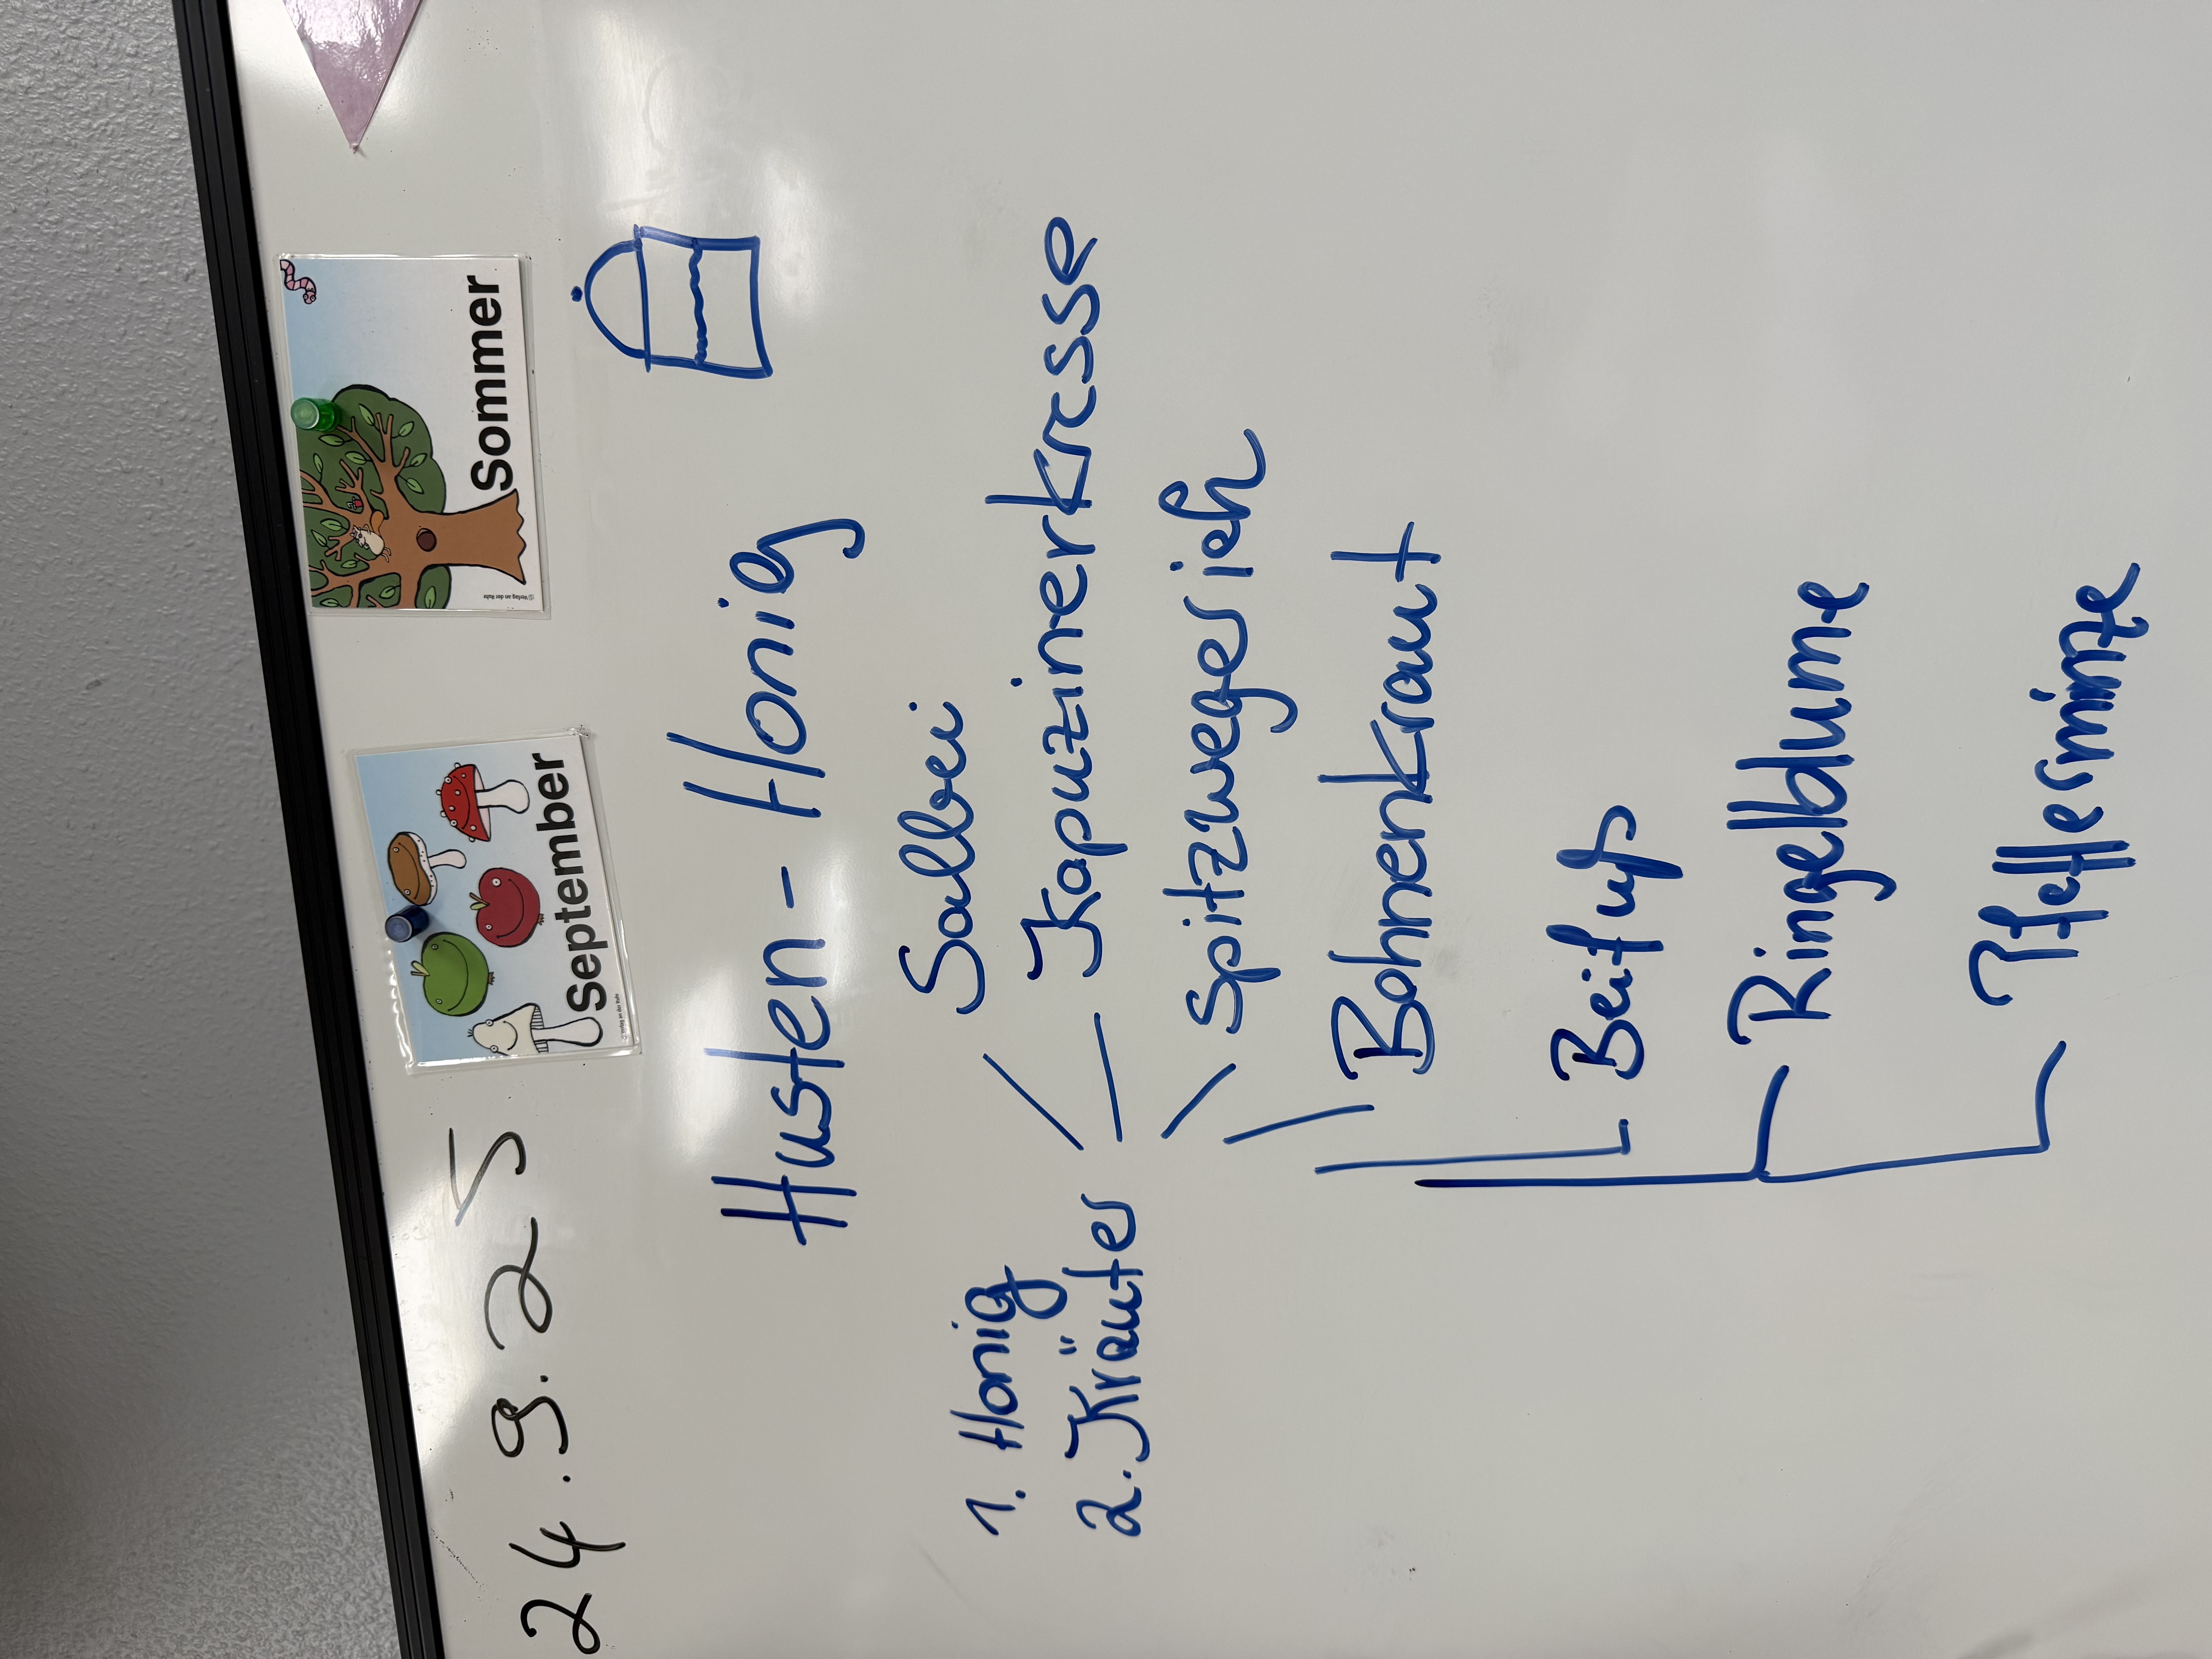 24.9.25
September
© Verlag an der Ruhr
Sommer
© Verlag an der Ruhr
Husten - Honig
1. Honig
2. Kräuter
Salbei
Kapuzinerkresse
Spitzwegerich
Bohnenkraut
Beifuß
Ringelblume
Pfefferminze